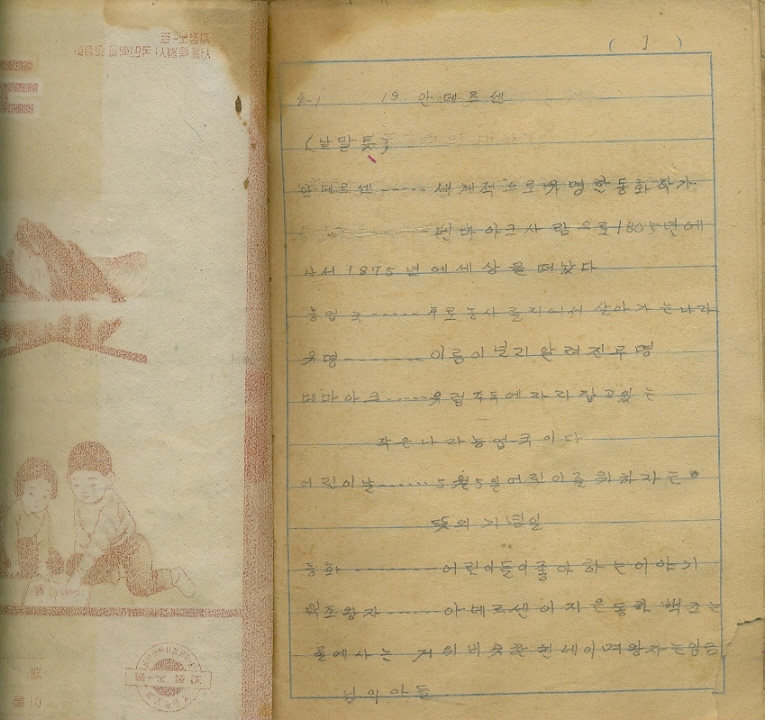 ( 1 )
4-1 19 안데르센
(낱말뜻)
안데르센 ----- 세계적으로유명한동화작가
덴마아크사람으로1805년에
나서 1875년에세상을떠났다
농업국 ------ 주로농사를지어서살아가는나라
유명 -------- 이름이널리알려진유명
덴마아크 ----- 유럽주우에자리잡고있는
작은나라농업국이다
어린이날 ------ 5월5일어린이를위하자는
뜻의 기념일
동화 -------- 어린이들이좋아하는이야기
백조왕자 ------ 아데르센이지은동화 백조는
물에사는 거위비슷한 힌새이며왕자는임금
님의아들